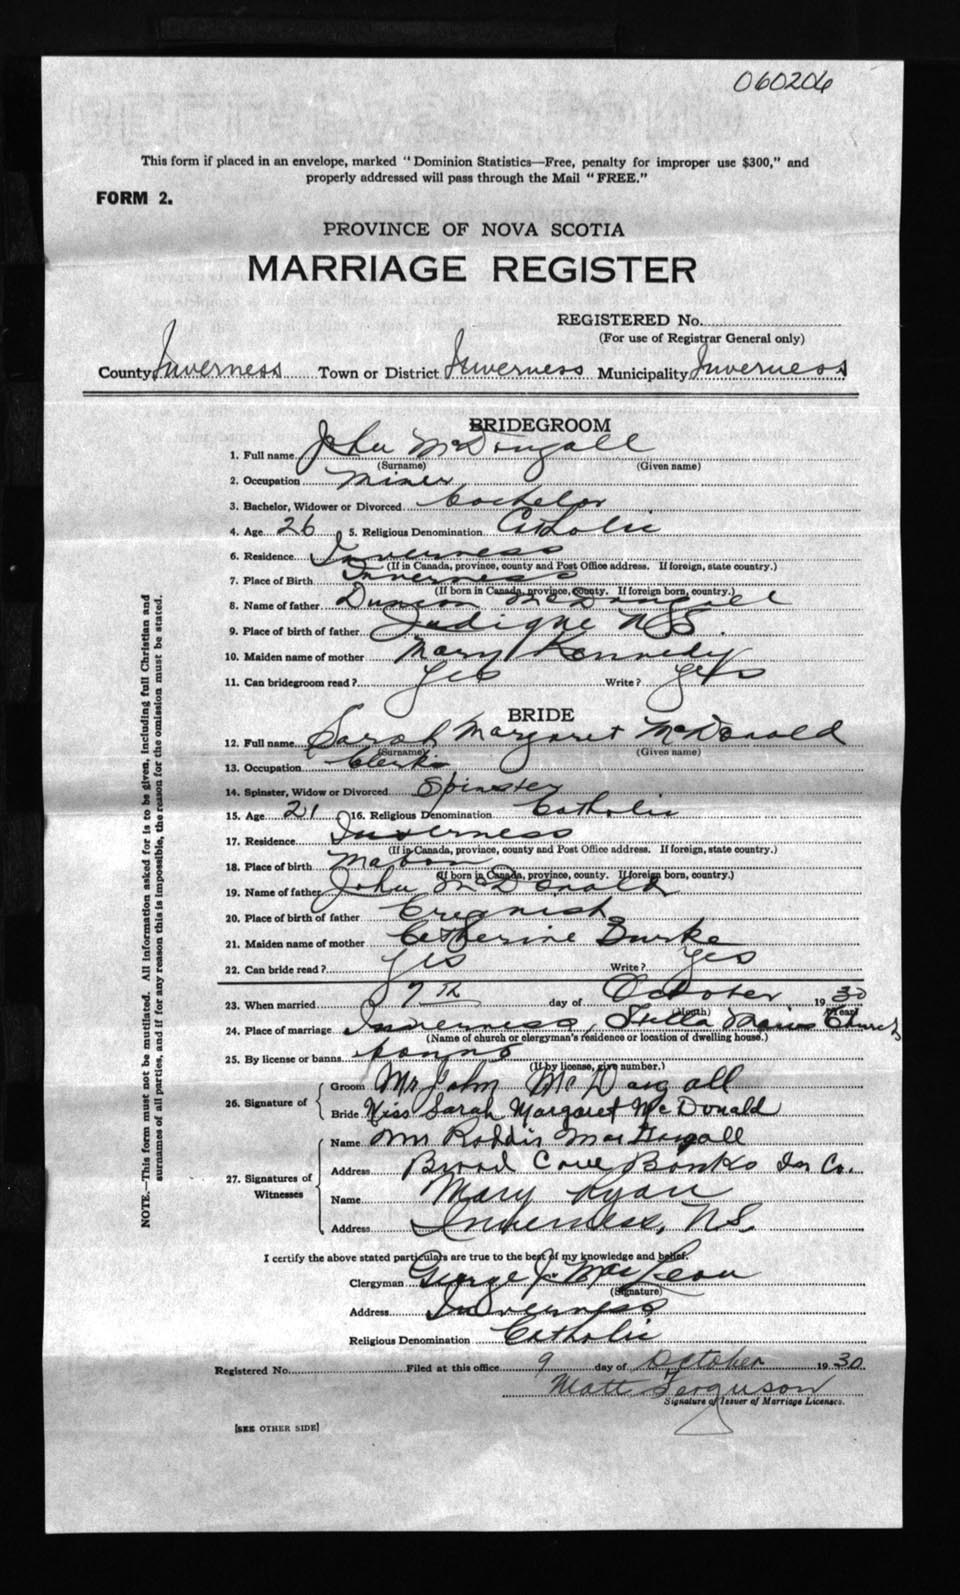 060206
This form if placed in an envelope, marked "Dominion Statistics—Free, penalty for improper use $300," and
properly addressed will pass through the Mail "FREE."
FORM 2.
PROVINCE OF NOVA SCOTIA
MARRIAGE REGISTER
REGISTERED No.
(For use of Registrar General only)
County Inverness Town or District Inverness Municipality Inverness
BRIDEGROOM
1. Full name John McDougall
(Surname) (Given name)
2. Occupation Miner
3. Bachelor, Widower or Divorced bachelor
4. Age 26 5. Religious Denomination Catholic
6. Residence Inverness
(If in Canada, province, county and Post Office address. If foreign, state country.)
7. Place of Birth Inverness
(If born in Canada, province, county. If foreign born, country.)
8. Name of father Duncan McDougall
9. Place of birth of father Judique N.S.
10. Maiden name of mother Mary Kennedy
11. Can bridegroom read? Yes Write? Yes
BRIDE
12. Full name Sarah Margaret McDonald
(Surname) (Given name)
13. Occupation Clerk
14. Spinster, Widow or Divorced Spinster
15. Age 21 16. Religious Denomination Catholic
17. Residence Inverness
(If in Canada, province, county and Post Office address. If foreign, state country.)
18. Place of birth Mabou
(If born in Canada, province, county. If foreign born, country.)
19. Name of father John McDonald
20. Place of birth of father Creignish
21. Maiden name of mother Catherine Burke
22. Can bride read? Yes Write? Yes
23. When married 7th day of October 1930
(Month) (Year)
24. Place of marriage Inverness, Stella Maris Church
(Name of church or clergyman's residence or location of dwelling house.)
25. By license or banns banns
(If by license, give number.)
26. Signature of
Groom Mr John McDougall
Bride Miss Sarah Margaret McDonald
27. Signatures of Witnesses
Name Roddie MacDougall
Address Broad Cove Banks Co.
Name Mary Ryan
Address Inverness, N.S.
I certify the above stated particulars are true to the best of my knowledge and belief.
Clergyman George J. MacLean
(Signature)
Address Inverness
Religious Denomination Catholic
Registered No. Filed at this office 9 day of October 1930
Matt Ferguson
Signature of Issuer of Marriage Licenses.
[SEE OTHER SIDE]
NOTE.—This form must not be mutilated. All information asked for is to be given, including full Christian and
surnames of all parties, and if for any reason this is impossible, the reason for the omission must be stated.